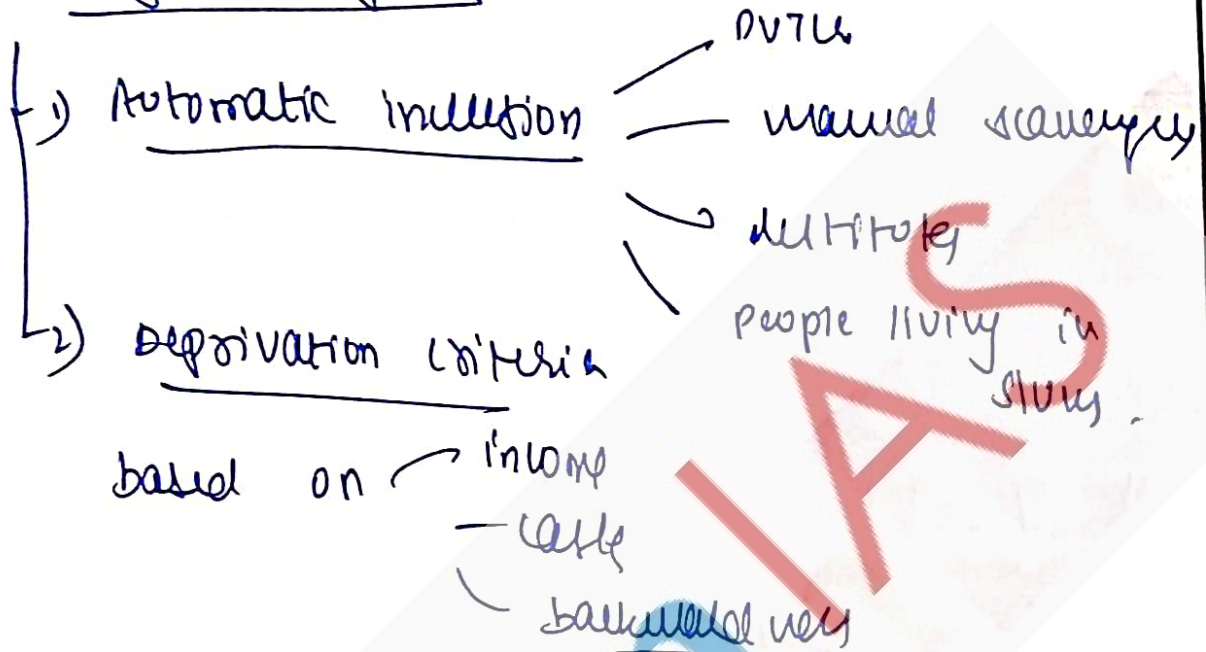 1) Automatic inclusion
PVTGs
manual scavengers
destitutes
people living in
slums.
2) Deprivation criteria
based on
income
caste
backwardness
IAS